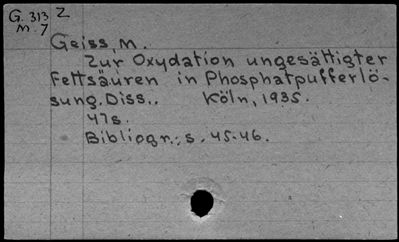 G. 313 Z
M. 7
Geiss, M.
Zur Oxydation ungesättigter
Fettsäuren in Phosphatpufferlö-
sung. Diss.. Köln, 1935.
47s.
Bibliogr.: s. 45-46.